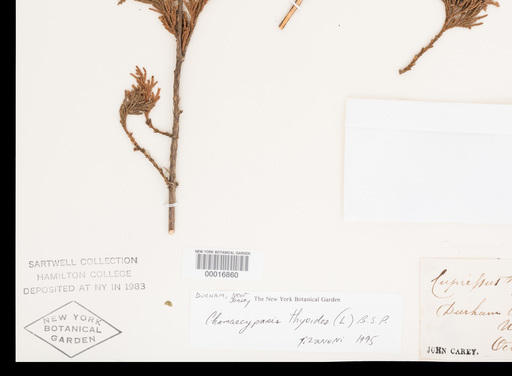 SARTWELL COLLECTION
HAMILTON COLLEGE
DEPOSITED AT NY IN 1983
NEW YORK
BOTANICAL
GARDEN
NEW YORK BOTANICAL GARDEN
00016860
DURHAM, NEW
JERSEY
The New York Botanical Garden
Chamaecyparis thyoides (L) B.S.P.
T. Zanoni 1995
Cupressus
Durham
JOHN CAREY.